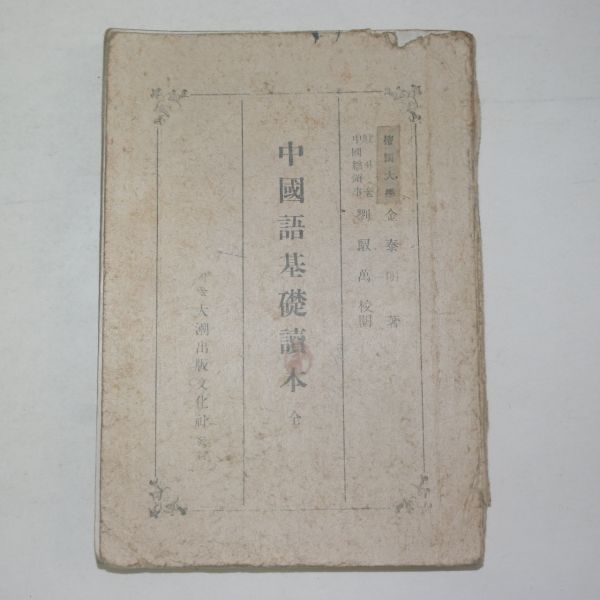 檀國大學 金泰明 著
서울 中國總領事 劉馭萬 校閱
中國語基礎讀本 全
서울 大潮出版文化社 發行